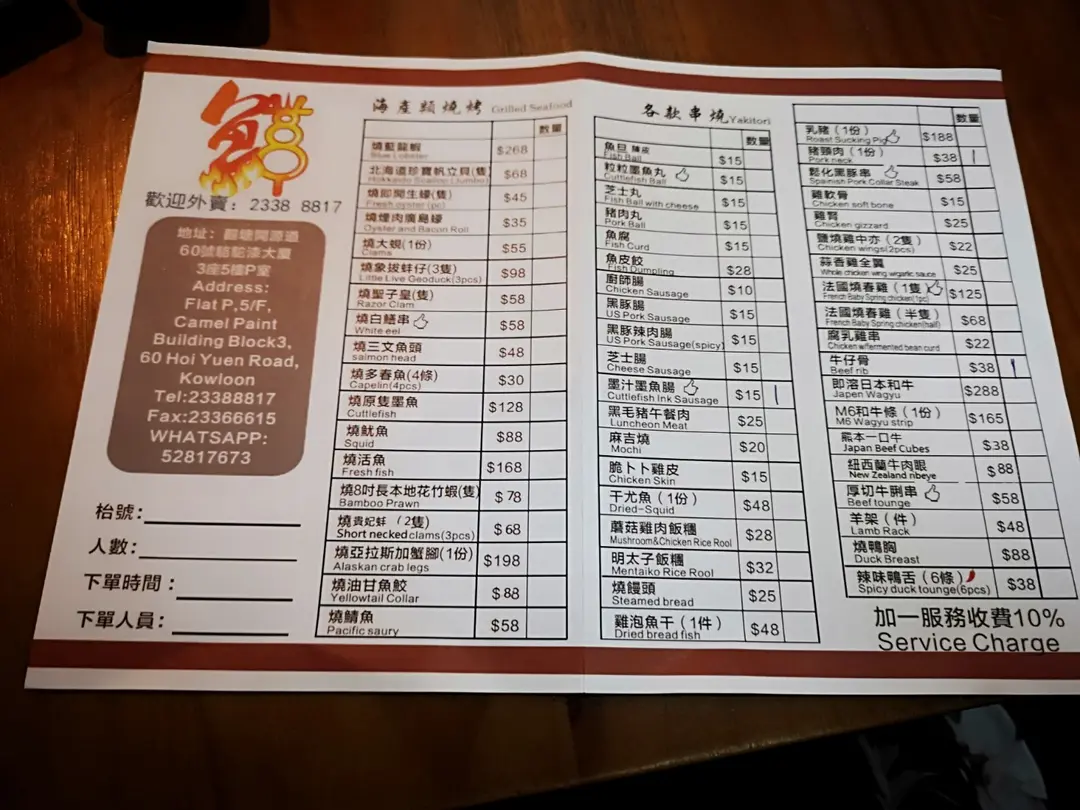 鱻
歡迎外賣：2338 8817
地址：觀塘開源道
60號駱駝漆大廈
3座5樓P室
Address:
Flat P,5/F,
Camel Paint
Building Block3,
60 Hoi Yuen Road,
Kowloon
Tel:23388817
Fax:23366615
WHATSAPP:
52817673
枱號:
人數:
下單時間：
下單人員:
海產類燒烤 Grilled Seafood
數量
燒藍龍蝦 $268
Blue Lobster
北海道珍寶帆立貝(隻) $68
Hokkaido Scallop (Jumbo)
燒即開生蠔(隻) $45
Fresh oyster (pc)
燒煙肉廣島蠔 $35
Oyster and Bacon Roll
燒大蜆(1份) $55
Clams
燒象拔蚌仔(3隻) $98
Little Live Geoduck(3pcs)
燒聖子皇(隻) $58
Razor Clam
燒白鱔串 $58
White eel
燒三文魚頭 $48
salmon head
燒多春魚(4條) $30
Capelin(4pcs)
燒原隻墨魚 $128
Cuttlefish
燒魷魚 $88
Squid
燒活魚 $168
Fresh fish
燒8吋長本地花竹蝦(隻) $78
Bamboo Prawn
燒貴妃蚌（2隻） $68
Short necked clams(3pcs)
燒亞拉斯加蟹腳(1份) $198
Alaskan crab legs
燒油甘魚鮫 $88
Yellowtail Collar
燒鯖魚 $58
Pacific saury
各款串燒 Yakitori
數量
魚旦 陳皮 $15
Fish Ball
粒粒墨魚丸 $15
Cuttlefish Ball
芝士丸 $15
Fish Ball with cheese
豬肉丸 $15
Pork Ball
魚腐 $15
Fish Curd
魚皮餃 $28
Fish Dumpling
廚師腸 $10
Chicken Sausage
黑豚腸 $15
US Pork Sausage
黑豚辣肉腸 $15
US Pork Sausage(spicy)
芝士腸 $15
Cheese Sausage
墨汁墨魚腸 $15
Cuttlefish Ink Sausage
黑毛豬午餐肉 $25
Luncheon Meat
麻吉燒 $20
Mochi
脆卜卜雞皮 $15
Chicken Skin
干尤魚（1份） $48
Dried-Squid
蘑菇雞肉飯糰 $28
Mushroom&Chicken Rice Rool
明太子飯糰 $32
Mentaiko Rice Rool
燒饅頭 $25
Steamed bread
雞泡魚干（1件） $48
Dried bread fish
數量
乳豬（1份） $188
Roast Sucking Pig
豬頸肉（1份） $38
Pork neck
鬆化黑豚串 $58
Spainish Pork Collar Steak
雞軟骨 $15
Chicken soft bone
雞腎 $25
Chicken gizzard
鹽燒雞中亦（2隻） $22
Chicken wings(2pcs)
蒜香雞全翼 $25
Whole chicken wing wrgarlic sauce
法國燒春雞（1隻） $125
French Baby Spring chicken(1pc)
法國燒春雞（半隻） $68
French Baby Spring chicken(half)
腐乳雞串 $22
Chicken w/fermented bean curd
牛仔骨 $38
Beef rib
即溶日本和牛 $288
Japen Wagyu
M6和牛條（1份） $165
M6 Wagyu strip
熊本一口牛 $38
Japan Beef Cubes
紐西蘭牛肉眼 $88
New Zealand ribeye
厚切牛脷串 $58
Beef tounge
羊架（件） $48
Lamb Rack
燒鴨胸 $88
Duck Breast
辣味鴨舌（6條） $38
Spicy duck tounge(6pcs)
加一服務收費10%
Service Charge